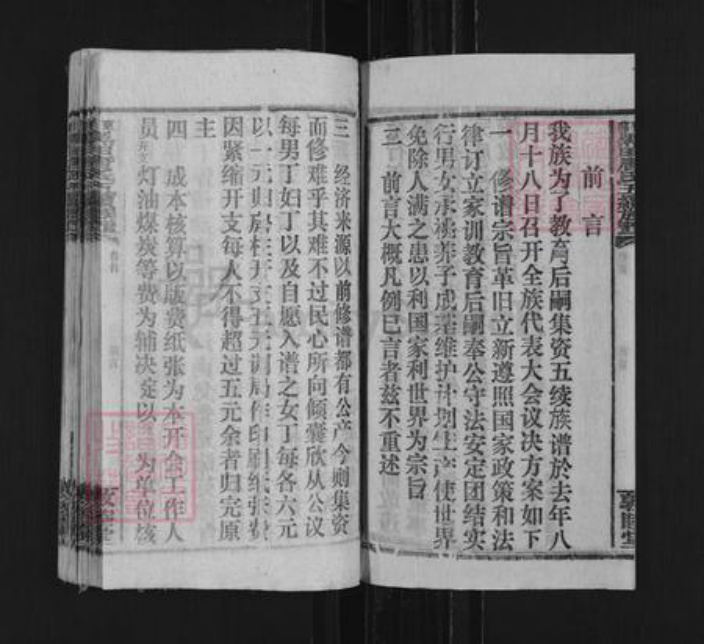 前言
我族为了教育后嗣集资五续族谱於去年八
月十八日召开全族代表大会议决方案如下
一 修谱宗旨革旧立新遵照国家政策和法
律订立家训教育后嗣奉公守法安定团结实
行男女承祧养子成范维护计划生产使世界
免除人满之患以利国家利世界为宗旨
二 前言大概凡例已言者兹不重述
三 经济来源以前修谱都有公产今则集资
而修难乎其难不过民心所向倾囊欣从公议
每男丁妇丁以及自愿入谱之女丁每各六元
以一元归房柱开支五元谱局作印刷纸张费
因紧缩开支每人不得超过五元余者归完原
主
四 成本核算以版费纸张为本开会工作人
员 灯油煤炭等费为辅决定以 为单位核